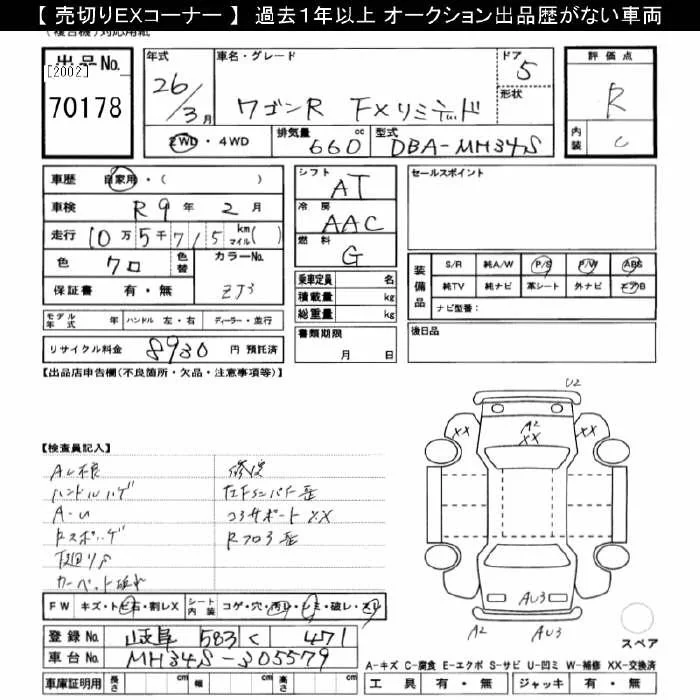 【 売切りEXコーナー 】 過去1年以上 オークション出品歴がない車両
(複合機)対応用紙
出品No.
[2002]
70178
年式
26/3月
車名・グレード
ワゴンR FXリミテッド
ドア
5
形状
2WD・4WD
排気量 660 cc
型式 DBA-MH34S
評価点
R
内装
C
車歴 自家用・( )
車検 R9年 2月
走行 10万5千715 km マイル( )
色 クロ
色替
カラーNo. ZJ3
保証書 有・無
モデル年式 年
ハンドル 左・右
ディーラー・並行
リサイクル料金 8930 円 預託済
シフト AT
冷房 AAC
燃料 G
乗車定員 名
積載量 kg
総重量 kg
書類期限
月 日
セールスポイント
装備品
S/R 純A/W P/S P/W ABS
純TV 純ナビ 革シート 外ナビ エアB
ナビ型番:
後日品
【出品店申告欄(不良箇所・欠品・注意事項等)】
【検査員記入】
ハンドルハゲ
A-U
下廻りサ
修復
コアサポートXX
U2
XX
A2
XX
XX
AU3
A2
AU3
スペア
FW キズ・トビ石・割レX
シート内装 コゲ・穴・汚レ・シミ・破レ・スレ
登録No. 岐阜 583 く 471
車台No. MH34S-305579
車庫証明用 長さ cm 幅 cm 高さ cm
A-キズ C-腐食 E-エクボ S-サビ U-凹ミ W-補修 XX-交換済
工具 有・無 ジャッキ 有・無